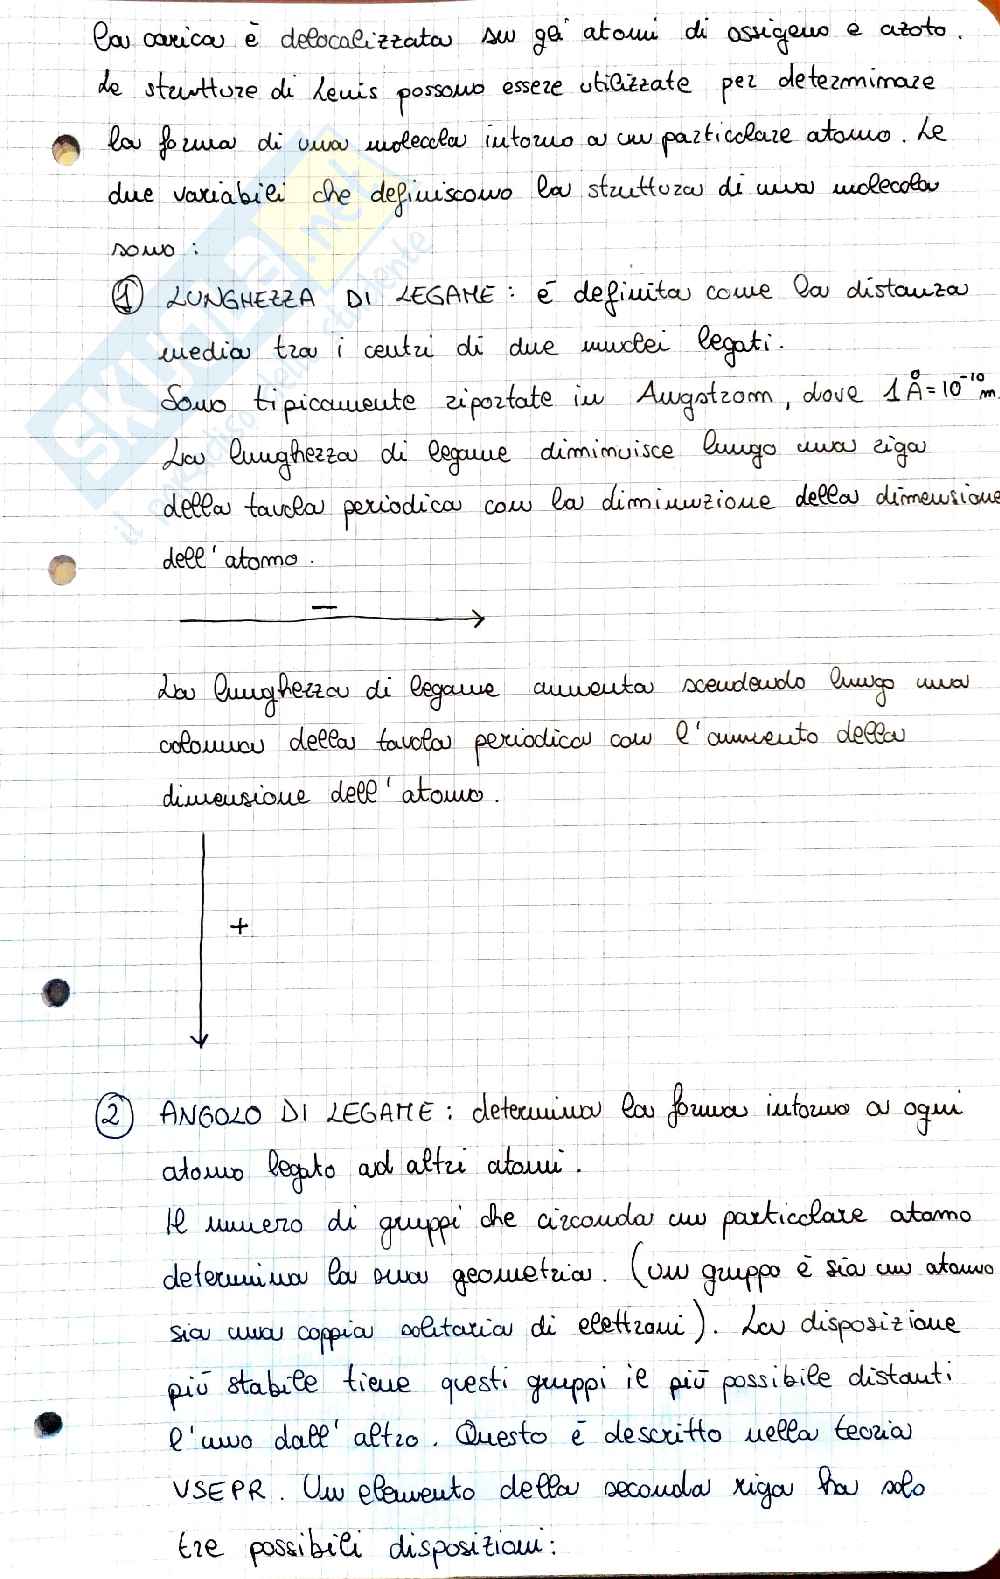 la carica è delocalizzata su gli atomi di ossigeno e azoto.
Le strutture di Lewis possono essere utilizzate per determinare
la forma di una molecola intorno a un particolare atomo. Le
due variabili che definiscono la struttura di una molecola
sono:
① LUNGHEZZA DI LEGAME: è definita come la distanza
media tra i centri di due nuclei legati.
Sono tipicamente riportate in Angstrom, dove 1 Å = 10⁻¹⁰ m.
La lunghezza di legame diminuisce lungo una riga
della tavola periodica con la diminuzione della dimensione
dell'atomo.
−
La lunghezza di legame aumenta scendendo lungo una
colonna della tavola periodica con l'aumento della
dimensione dell'atomo.
+
② ANGOLO DI LEGAME: determina la forma intorno a ogni
atomo legato ad altri atomi.
Il numero di gruppi che circonda un particolare atomo
determina la sua geometria. (Un gruppo è sia un atomo
sia una coppia solitaria di elettroni). La disposizione
più stabile tiene questi gruppi il più possibile distanti
l'uno dall'altro. Questo è descritto nella teoria
VSEPR. Un elemento della seconda riga ha solo
tre possibili disposizioni:
SKUOLA.net
il paradiso dello studente